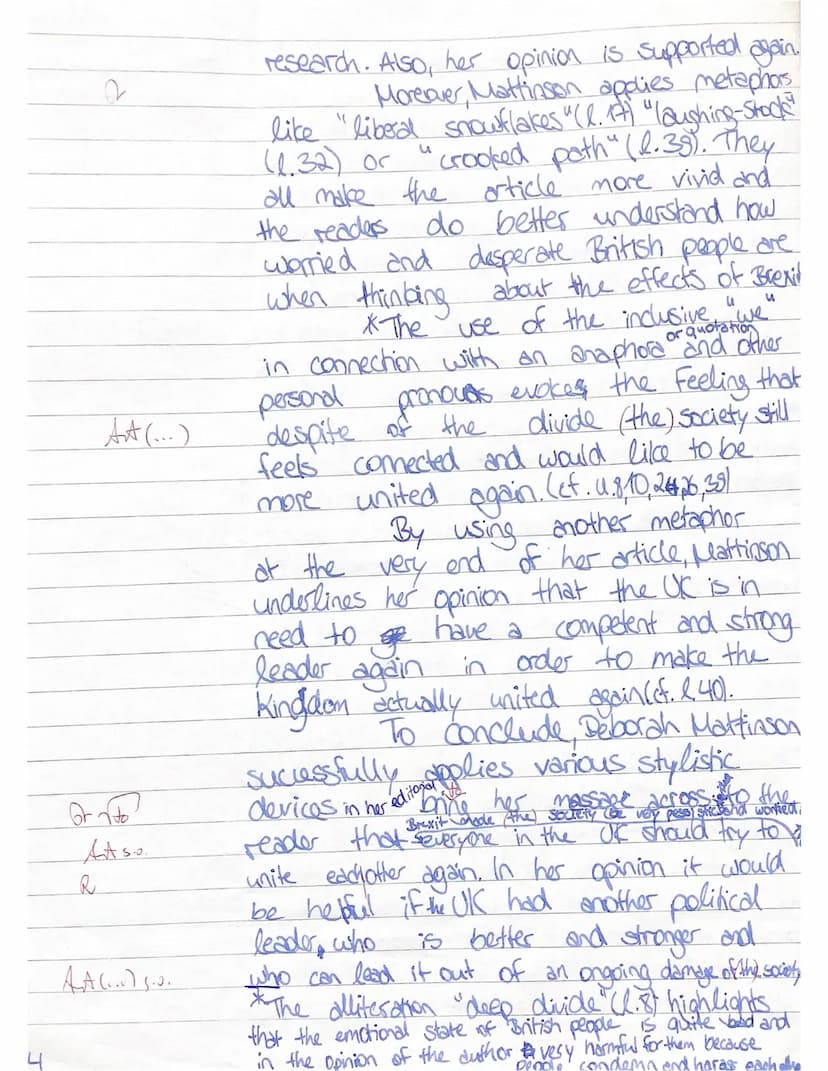 research. Also, her opinion is supported again.
R
Moreover, Mattinson applies metaphors
like "liberal snowflakes" (l.17) "laughing-stock"
(l.32) or "crooked path" (l.39). They
all make the article more vivid and
the readers do better understand how
worried and desperate British people are
when thinking about the effects of Brexit
*The use of the inclusive "we"
in connection with an anaphora or quotation and other
personal pronouns evokes the feeling that
A.A (...)
despite of the divide (the) society still
feels connected and would like to be
more united again. (cf. ll.8,10, 26, 39)
By using another metaphor
at the very end of her article, Mattinson
underlines her opinion that the UK is in
need to have a competent and strong
leader again in order to make the
Kingdom actually united again (cf. l.40).
To conclude, Deborah Mattinson
successfully applies various stylistic
Gr √to
devices in her editorial to bring her massage across to the
Brexit made (the) society be very pessimistic and worried
A.A s.o.
reader that everyone in the UK should try to
R
unite eachother again. In her opinion it would
be helpful if the UK had another political
leader, who is better and stronger and
A.A (...) s.o.
who can lead it out of an ongoing damage of (the) society
*The alliteration "deep divide" (l.8) highlights
that the emotional state of British people is quite bad and
4
in the opinion of the author very harmful for them because
people condemn and harass each